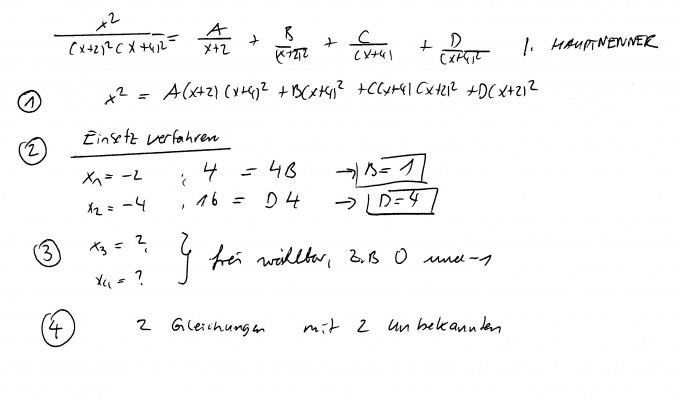 x²/((x+2)²(x+4)²) = A/(x+2) + B/(x+2)² + C/(x+4) + D/(x+4)² | · HAUPTNENNER
① x² = A(x+2)(x+4)² + B(x+4)² + C(x+4)(x+2)² + D(x+2)²
② Einsetzverfahren
x₁ = -2 ; 4 = 4B → B = 1
x₂ = -4 , 16 = D4 → D = 4
③ x₃ = ?
x₄ = ? } frei wählbar, z.B 0 und -1
④ 2 Gleichungen mit 2 Unbekannten